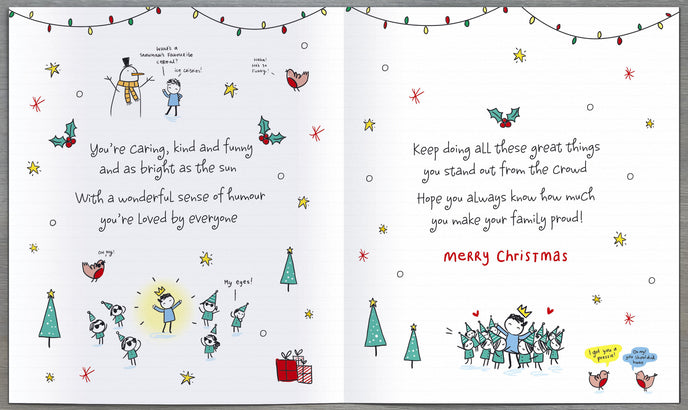 What's a
snowman's favourite
cereal?
Ice crispies!
Haha!
that's so
funny!
You're caring, kind and funny
and as bright as the sun
With a wonderful sense of humour
you're loved by everyone
Oh my!
My eyes!
Keep doing all these great things
you stand out from the crowd
Hope you always know how much
you make your family proud!
Merry Christmas
I got you a
pressie!
Oh my
you shouldn't
have